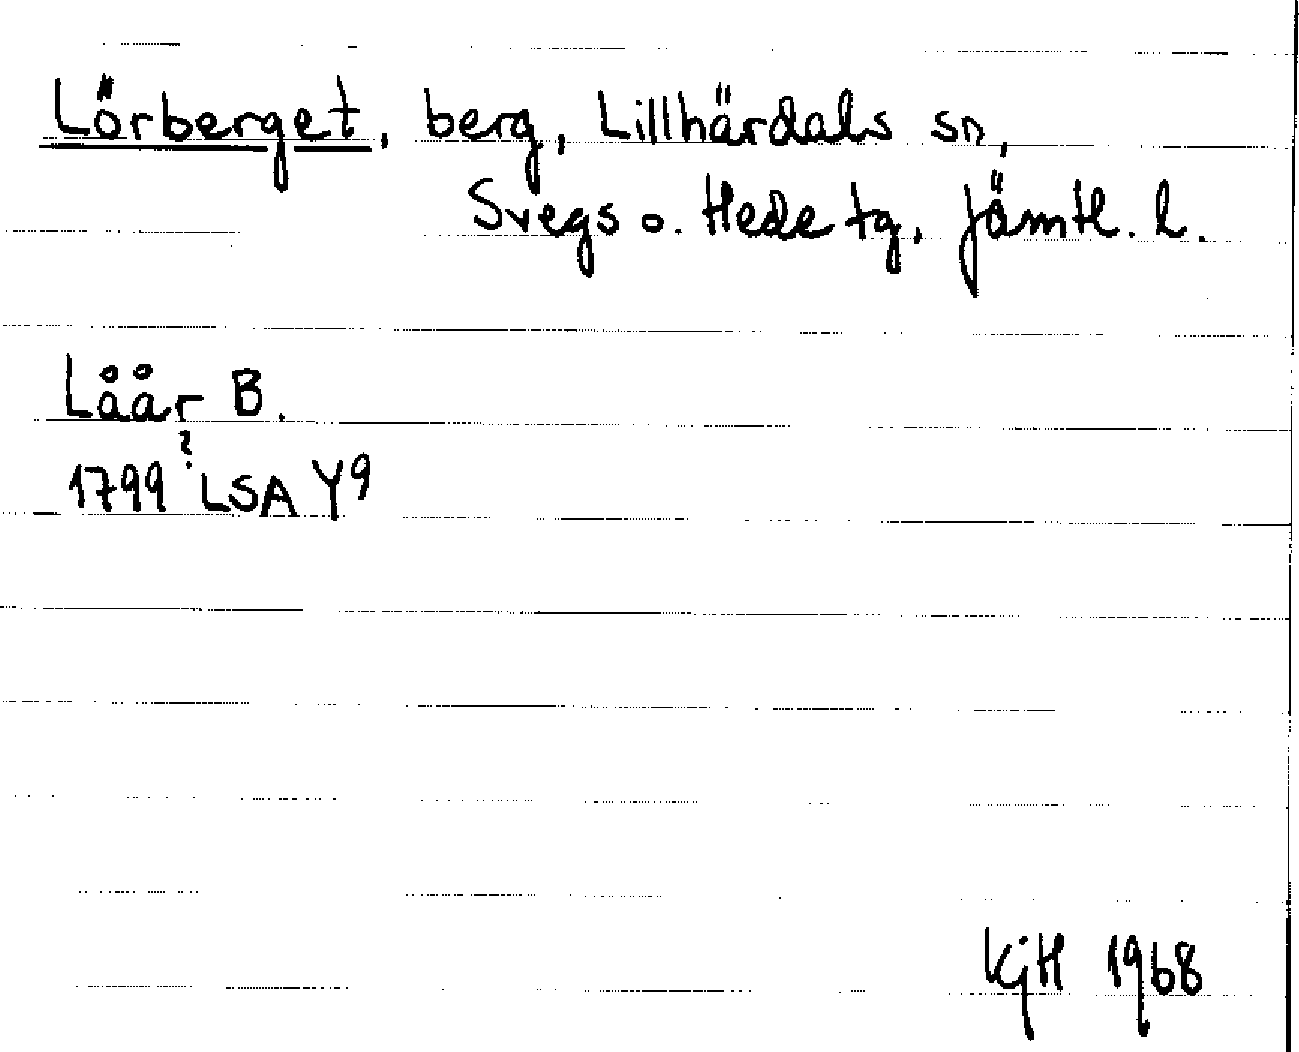 Lörberget, berg, Lillhärdals sn,
Svegs o. Hede tg, Jämtl. l.
Låår B.
?
1799 LSA Y9
KjH 1968